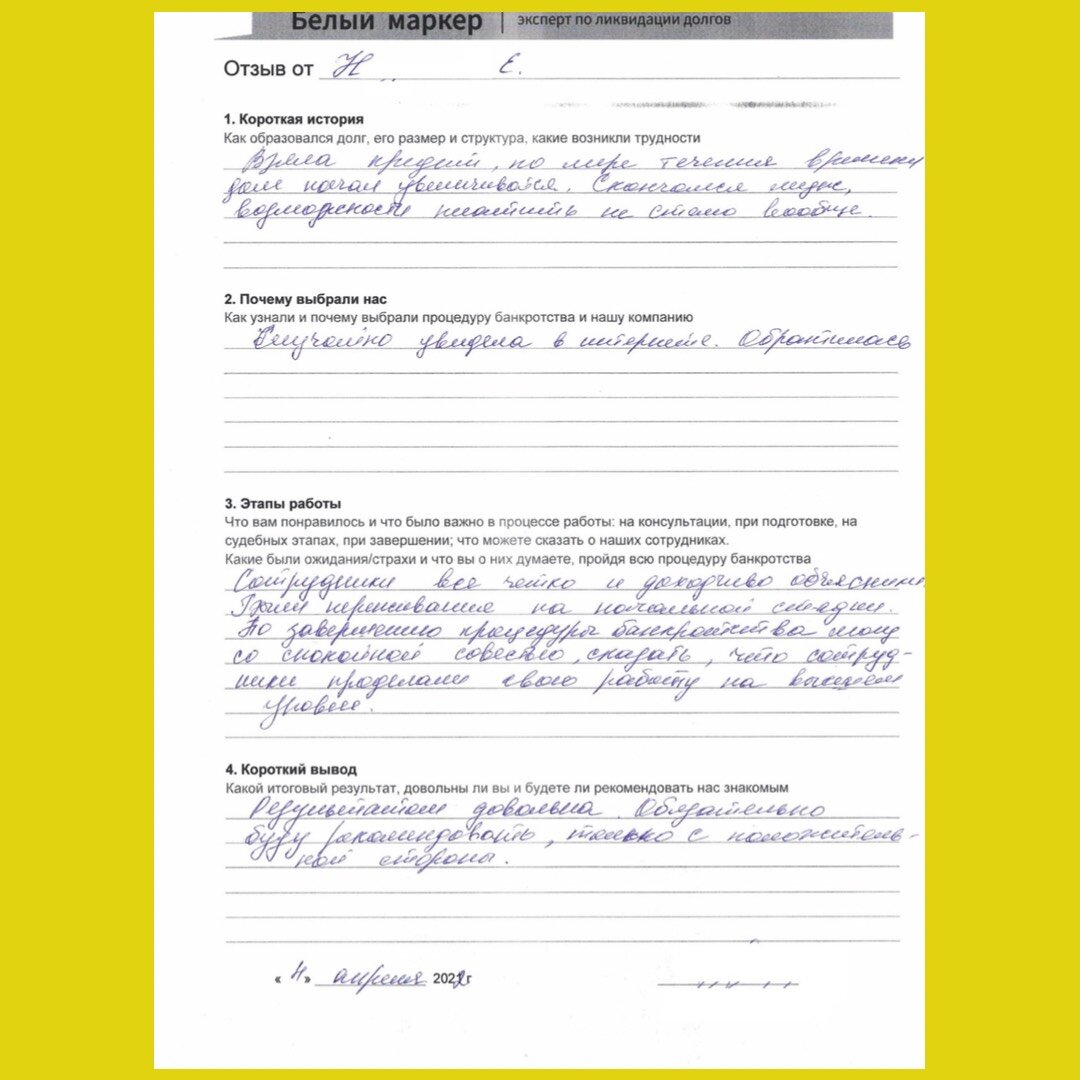 Белый маркер | эксперт по ликвидации долгов
Отзыв от Н Е.
1. Короткая история
Как образовался долг, его размер и структура, какие возникли трудности
Взяла кредит, по мере течения времени
долг начал увеличиваться. Скончался муж,
возможности платить не стало вообще.
2. Почему выбрали нас
Как узнали и почему выбрали процедуру банкротства и нашу компанию
Случайно увидела в интернете. Обратилась
3. Этапы работы
Что вам понравилось и что было важно в процессе работы: на консультации, при подготовке, на
судебных этапах, при завершении; что можете сказать о наших сотрудниках.
Какие были ожидания/страхи и что вы о них думаете, пройдя всю процедуру банкротства
Сотрудники все четко и доходчиво объяснили
Были переживания на начальной стадии.
По завершению процедуры банкротства могу
со спокойной совестью, сказать, что сотруд-
ники проделали свою работу на высшем
уровне.
4. Короткий вывод
Какой итоговый результат, довольны ли вы и будете ли рекомендовать нас знакомым
Результатом довольна. Обязательно
буду рекомендовать, только с положитель-
ной стороны.
«4» апреля 2022 г